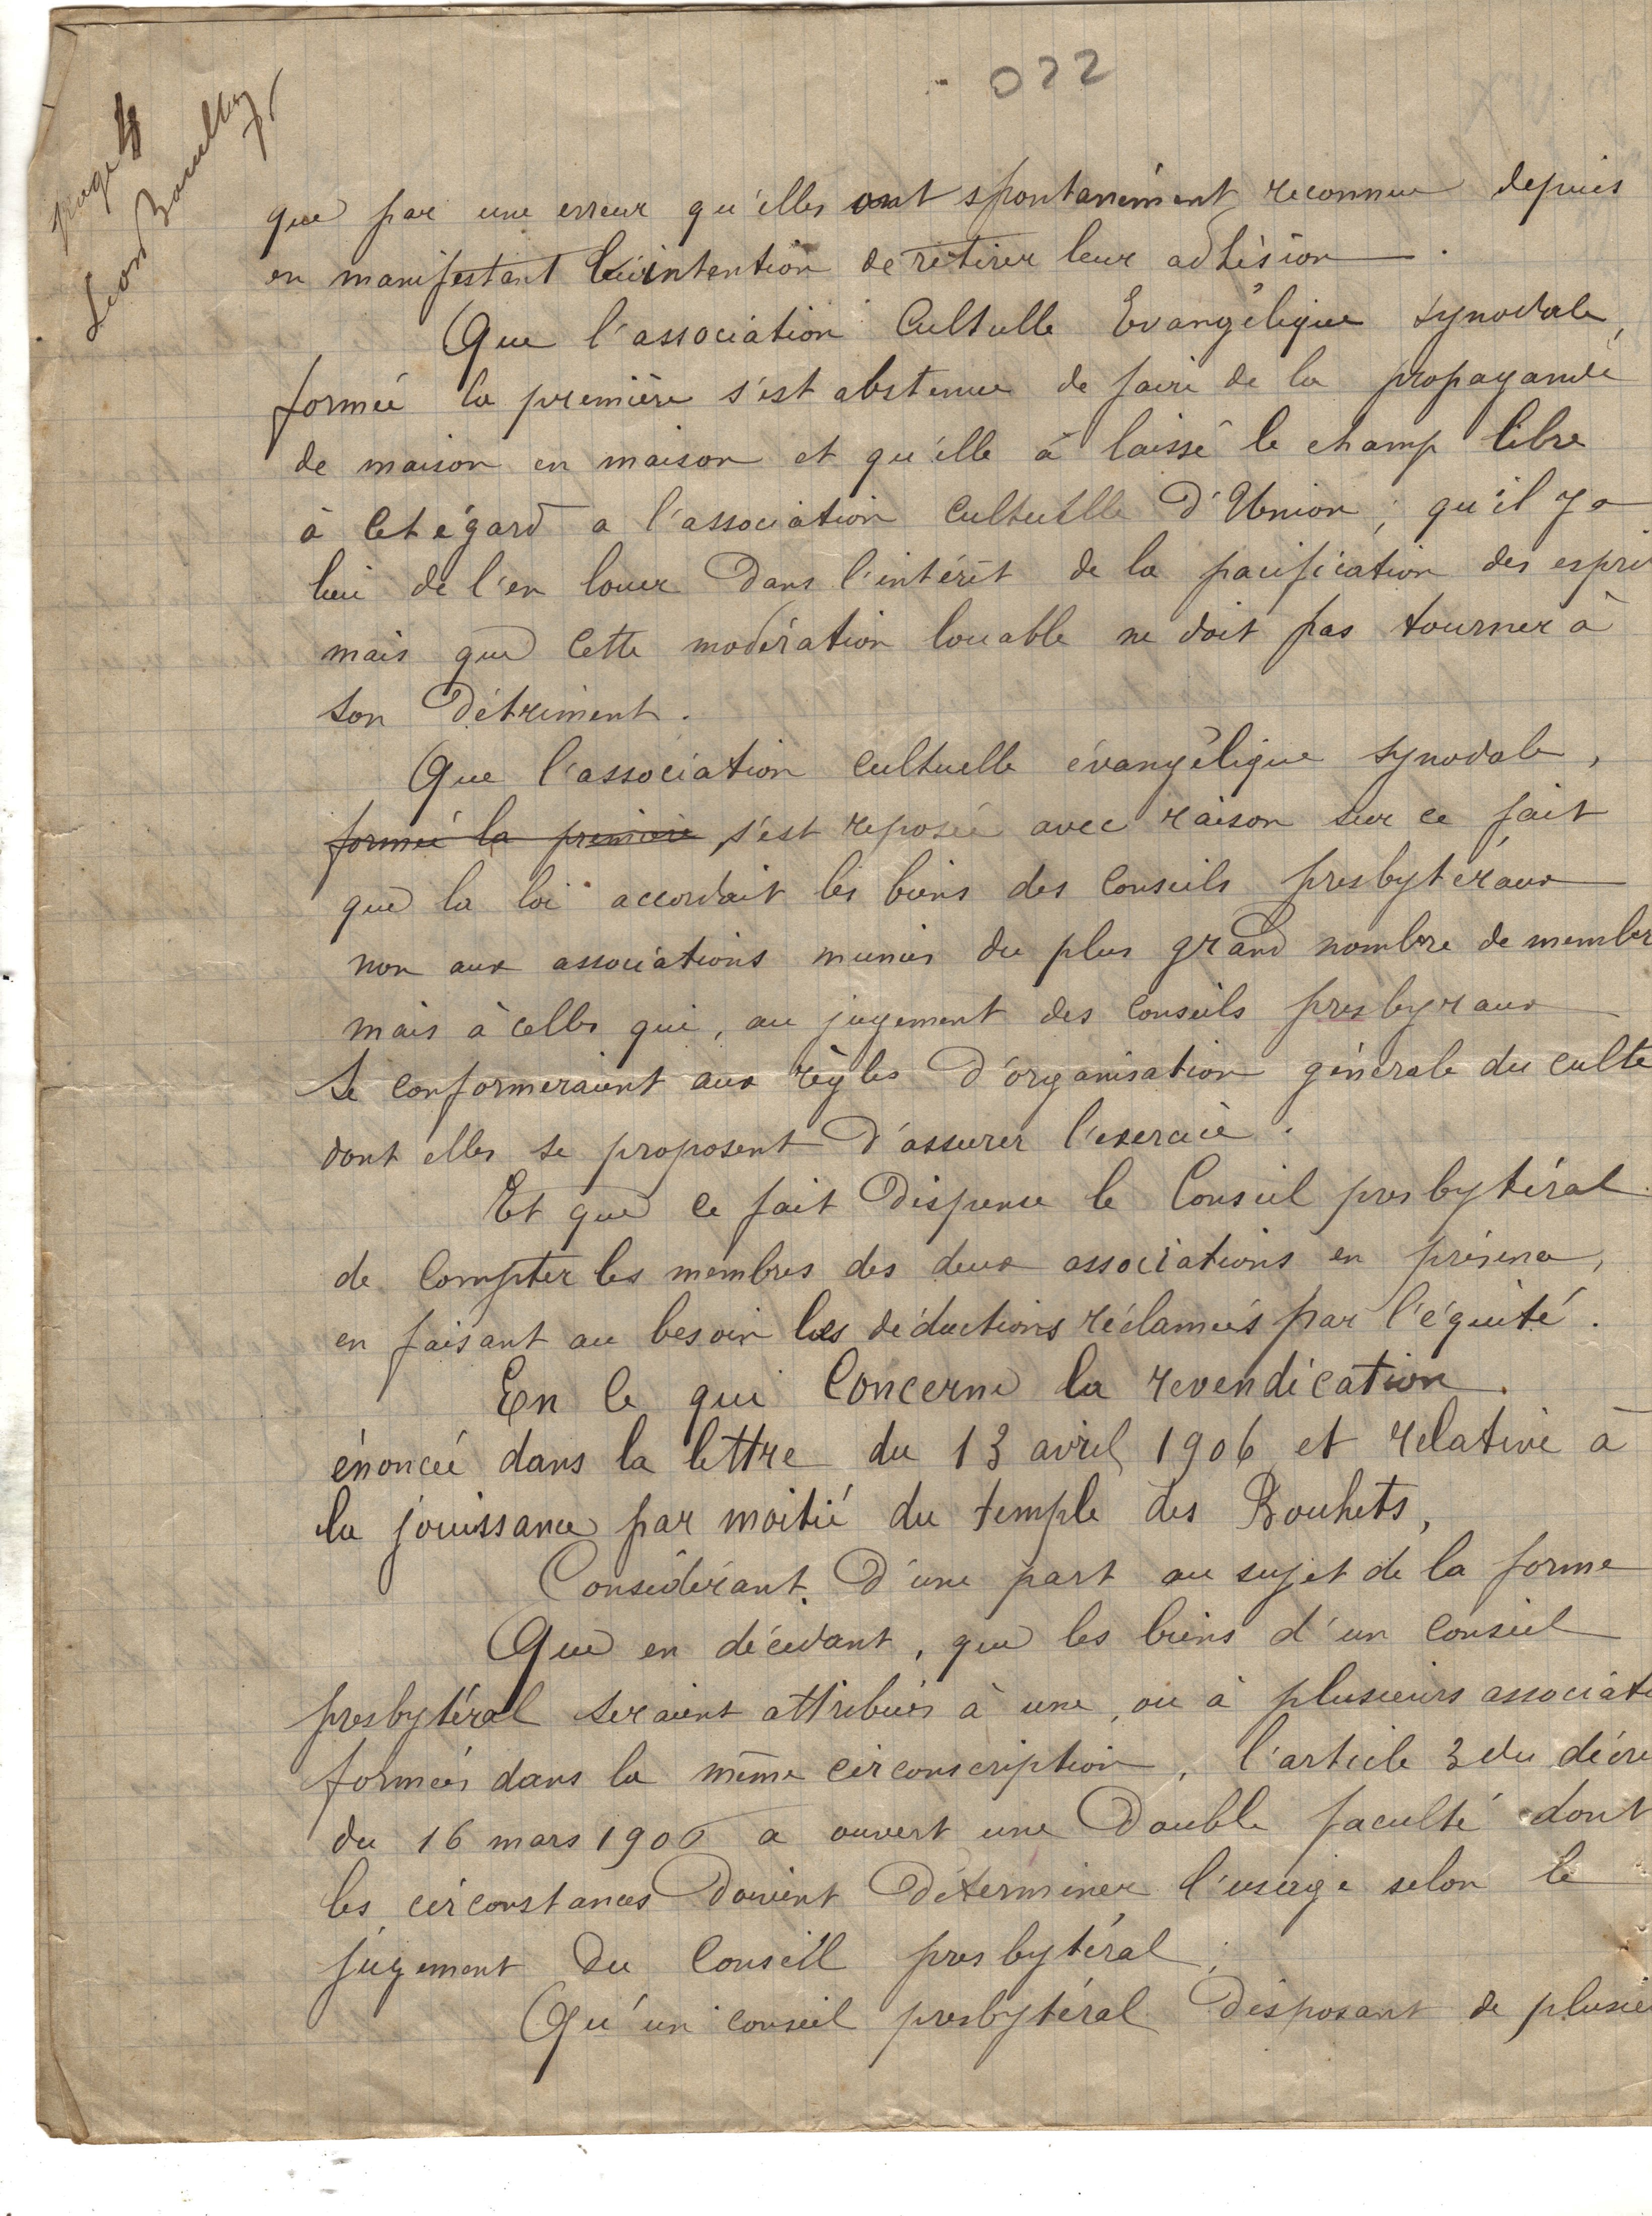 022
page 4
Léon
que par une erreur qu'elles ont spontanément reconnue depuis
en manifestant leur intention de retirer leur adhésion.
Que l'association Cultuelle Evangélique Synodale,
formée la première s'est abstenue de faire de la propagande
de maison en maison et qu'elle à laissé le champ libre
à Cet égard a l'association Cultuelle d'Union ; qu'il y a
lieu de l'en louer Dans l'intérêt de la pacification des espri
mais que Cette modération louable ne doit pas tourner à
son Détriment.
Que l'association Cultuelle évangélique synodale,
formée la première, s'est reposée avec raison sur ce fait
que la loi accordait les biens des Conseils presbytéraux
non aux associations munies du plus grand nombre de member
mais à celles qui, au jugement des Conseils presbyraux
Se conformeraient aux règles D'organisation générale du culte
dont elles se proposent D'assurer l'exercice.
Et que ce fait Dispense le Conseil presbytéral
de Compter les membres des deux associations en présence,
en faisant au besoin les déductions réclamées par l'équité.
En ce qui Concerne la revendication
énoncée dans la lettre du 13 avril 1906 et relative à
la jouissance par moitié du temple des Bouhets,
Considérant D'une part au sujet de la forme
Que en décidant, que les biens d'un Conseil
presbytéral seraient attribués à une, ou à plusieurs associati
formées dans la même circonscription, l'article 3 du décre
du 16 mars 1906 a ouvert une Double faculté dont
les circonstances Doivent Déterminer l'usage selon le
jugement Du Conseil presbytéral ;
Qu'un conseil presbytéral Disposant de plusie